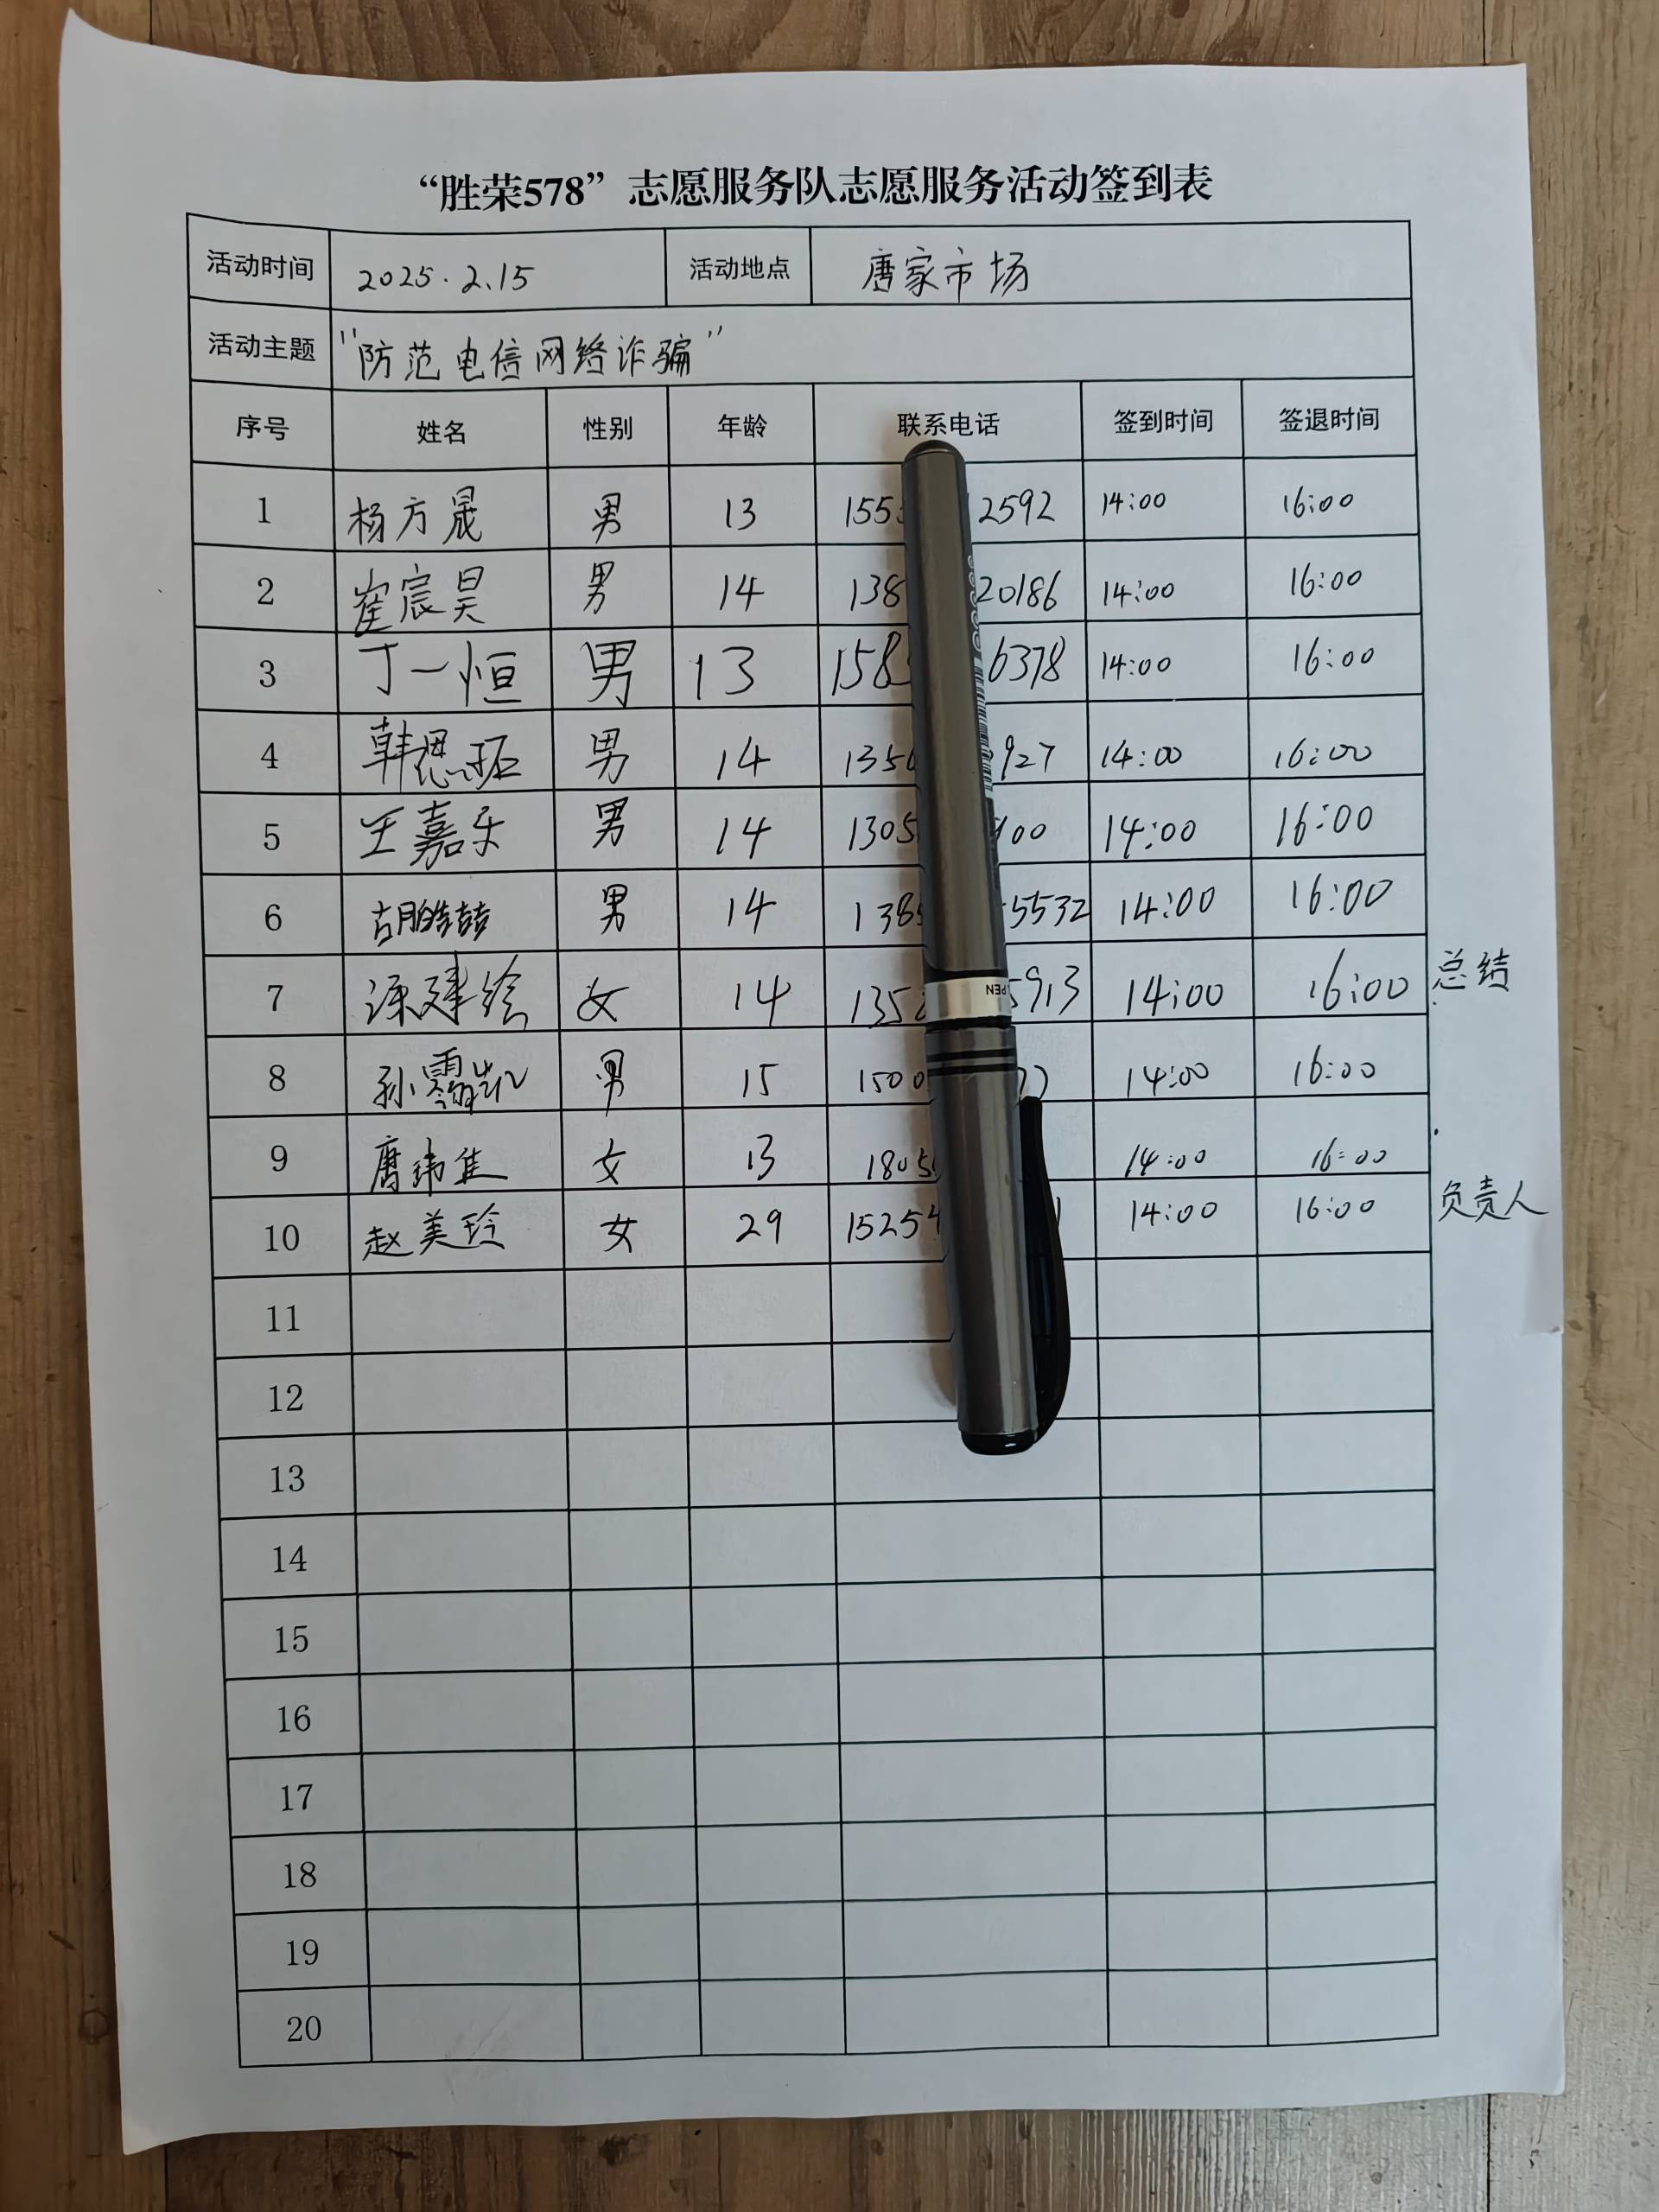 “胜荣578”志愿服务队志愿服务活动签到表
活动时间 2025.2.15 活动地点 唐家市场
活动主题 "防范电信网络诈骗"
序号 姓名 性别 年龄 联系电话 签到时间 签退时间
1 杨方晟 男 13 155 2592 14:00 16:00
2 崔宸昊 男 14 138 20186 14:00 16:00
3 丁一恒 男 13 158 6378 14:00 16:00
4 韩思 男 14 135 927 14:00 16:00
5 王嘉乐 男 14 1305 00 14:00 16:00
6 胡皓喆 男 14 138 5532 14:00 16:00
7 涂建绘 女 14 135 5913 14:00 16:00 总结
8 孙 凯 男 15 1500 14:00 16:00
9 唐 女 13 1805 14:00 16:00
10 赵美玲 女 29 15254 14:00 16:00 负责人
11
12
13
14
15
16
17
18
19
20
PEN